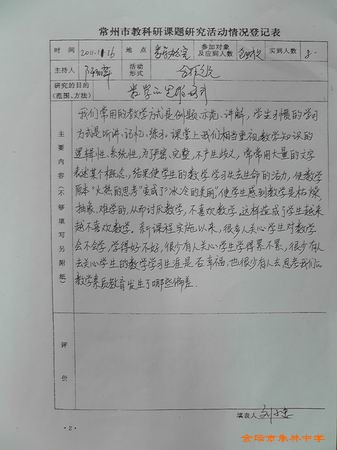 常州市教科研课题研究活动情况登记表
时间 2011.11.16 地点 参加对象及应到人数 实到人数
主持人 活动形式
研究的目的(范围、方法)
主要内容(不够填写另附纸)
我们常用的教学方式是例题、示范、讲解,学生习惯的学习
方式是听讲、记忆、练习。课堂上我们相当重视数学知识的
逻辑性、系统性,为严密、完整,不产生歧义,常常用大量的文字
表述某个概念,结果使学生的数学学习失去生命的活力,使数学
原本“火热的思考”变成了“冰冷的美丽”,使学生感到数学是枯燥
抽象、难学的,从而讨厌数学,不喜欢数学。这样造成了学生越来
越不喜欢数学。新课程实施以来,很多人关心学生对数学
会不会学,学得好不好,很少有人关心学生学得累不累,很少有人
去关心学生的数学学习生涯是否幸福,也很少有人去思考我们的
数学素质教育发生了哪些偏差。
评价
填表人
·2·